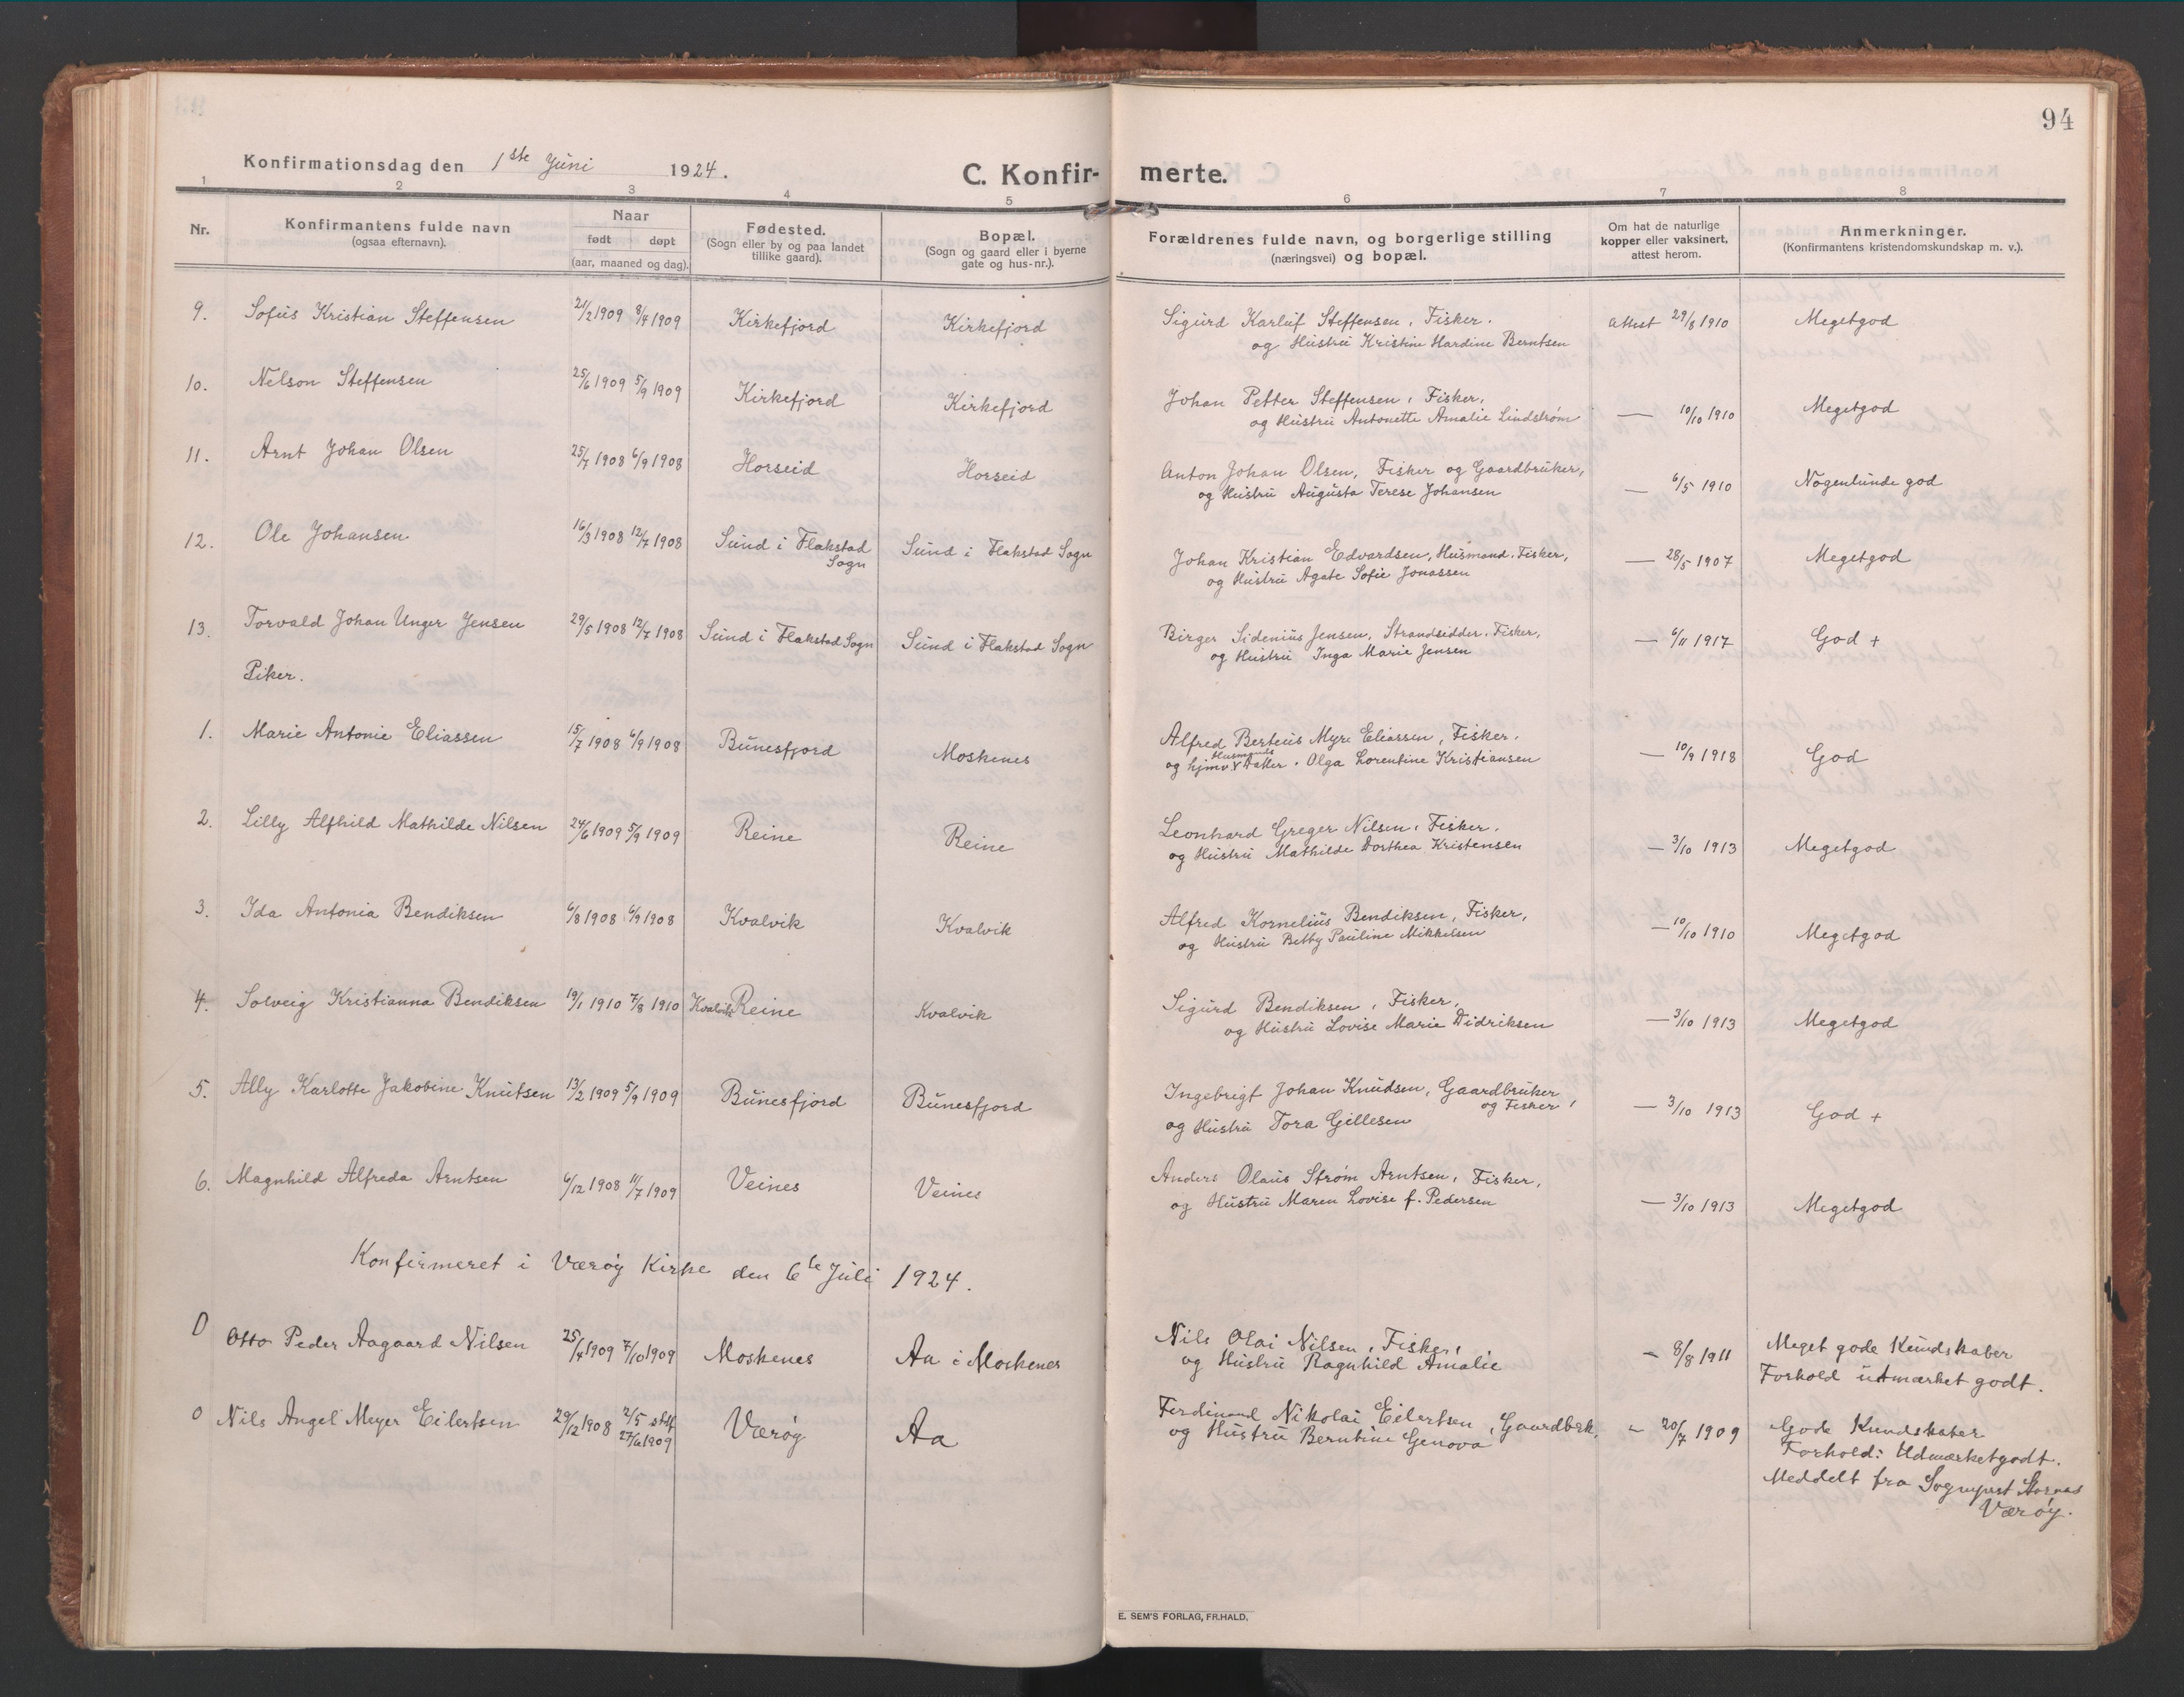 94
Konfirmationsdag den 1ste Juni 1924.
C. Konfir- merte.
1 2 3 4 5 6 7 8
Nr.
Konfirmantens fulde navn
(ogsaa efternavn).
Naar
født døpt
(aar, maaned og dag).
Fødested.
(Sogn eller by og paa landet
tillike gaard).
Bopæl.
(Sogn og gaard eller i byerne
gate og hus-nr.).
Forældrenes fulde navn, og borgerlige stilling
(næringsvei) og bopæl.
Om hat de naturlige
kopper eller vaksinert,
attest herom.
Anmerkninger.
(Konfirmantens kristendomskundskap m. v.).
9. Sofus Kristian Steffensen 21/2 1909 8/4 1909 Kirkefjord Kirkefjord Sigurd Karluf Steffensen, Fisker. attest 29/8 1910 Megetgod
og Hustru Kristine Hardine Berntsen
10. Nelson Steffensen 25/6 1909 5/9 1909 Kirkefjord Kirkefjord Johan Petter Steffensen, Fisker,
og Hustru Antonette Amalie Lindstrøm — 10/10 1910 Megetgod
11. Arnt Johan Olsen 25/7 1908 6/9 1908 Horseid Horseid Anton Johan Olsen, Fisker og Gaardbruker,
og Hustru Augusta Terese Johansen — 6/5 1910 Nogenlunde god
12. Ole Johansen 16/3 1908 12/7 1908 Sund i Flakstad Sund i Flakstad Sogn Johan Kristian Edvardsen, Husmand. Fisker, — 28/5 1907 Megetgod
Sogn og Hustru Agate Sofie Jonassen
13. Torvald Johan Unger Jensen 29/5 1908 12/7 1908 Sund i Flakstad Sogn Sund i Flakstad Sogn Birger Sidenius Jensen, Strandsidder. Fisker, — 6/11 1917 God +
og Hustru Inga Marie Jensen
Piker.
1. Marie Antonie Eliassen 15/7 1908 6/9 1908 Bunesfjord Moskenes Alfred Berteus Myre Eliassen, Fisker, — 10/9 1918 God
Husmands
og hjmv Datter. Olga Lorentine Kristiansen
2. Lilly Alfhild Mathilde Nilsen 24/6 1909 5/9 1909 Reine Reine Leonhard Greger Nilsen, Fisker.
og Hustru Mathilde Dorthea Kristensen — 3/10 1913 Megetgod
3. Ida Antonia Bendiksen 6/8 1908 6/9 1908 Kvalvik Kvalvik Alfred Kornelius Bendiksen, Fisker,
og Hustru Betty Pauline Mikkelsen — 10/10 1910 Megetgod
4. Solveig Kristianna Bendiksen 19/1 1910 7/8 1910 Kvalvik Reine Kvalvik Sigurd Bendiksen, Fisker,
og Hustru Lovise Marie Didriksen — 3/10 1913 Megetgod
5. Ally Karlotte Jakobine Knutsen 13/2 1909 5/9 1909 Bunesfjord Bunesfjord Ingebrigt Johan Knudsen, Gaardbruker
og Fisker, — 3/10 1913 God +
og Hustru Tora Gillesen
6. Magnhild Alfreda Arntsen 6/12 1908 11/7 1909 Veines Veines Anders Olaus Strøm Arntsen, Fisker,
og Hustru Maren Lovise f. Pedersen — 3/10 1913 Megetgod
Konfirmeret i Værøy Kirke den 6te Juli 1924.
0 Otto Peder Aagaard Nilsen 25/4 1909 7/10 1909 Moskenes Aa i Moskenes Nils Olai Nilsen, Fisker, — 8/8 1911 Meget gode Kundskaber
og Hustru Ragnhild Amalie Forhold utmærket godt.
0 Nils Angel Meyer Eilertsen 29/12 1908 2/5 stdf Værøy Aa Ferdinand Nikolai Eilertsen, Gaardbrk. — 20/7 1909 Gode Kundskaber
27/6 1909 og Hustru Berntine Genova Forhold: Udmærketgodt.
Meddelt fra Sogneprest
Værøy.
E. SEM'S FORLAG, FR.HALD,